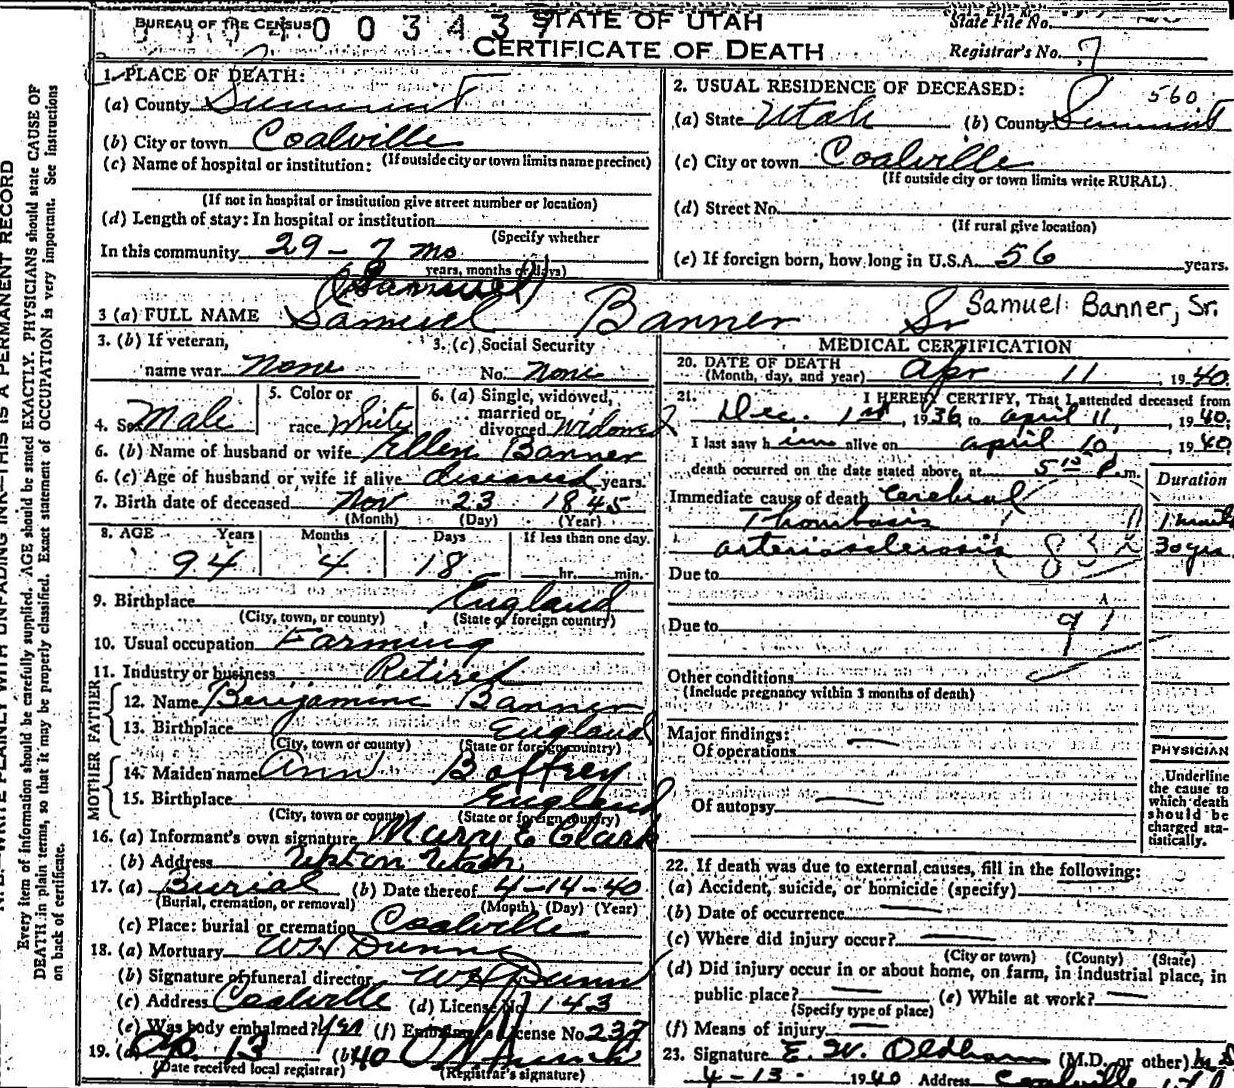 BUREAU OF THE CENSUS
0 0 3 4 3
STATE OF UTAH
CERTIFICATE OF DEATH
State File No.
Registrar's No. 7
WRITE PLAINLY WITH UNFADING INK—THIS IS A PERMANENT RECORD
Every item of information should be carefully supplied. AGE should be stated EXACTLY. PHYSICIANS should state CAUSE OF
DEATH in plain terms, so that it may be properly classified. Exact statement of OCCUPATION is very important. See instructions
on back of certificate.
1. PLACE OF DEATH:
(a) County Summit
(b) City or town Coalville
(If outside city or town limits name precinct)
(c) Name of hospital or institution:
(If not in hospital or institution give street number or location)
(d) Length of stay: In hospital or institution
(Specify whether
In this community 29 - 7 mo
years, months or days)
2. USUAL RESIDENCE OF DECEASED: 560
(a) State Utah (b) County Summit
(c) City or town Coalville
(If outside city or town limits write RURAL)
(d) Street No.
(If rural give location)
(e) If foreign born, how long in U.S.A. 56 years.
(Samuel)
3 (a) FULL NAME Samuel Banner Sr Samuel Banner, Sr.
3. (b) If veteran,
name war None
3. (c) Social Security
No. None
4. Sex Male
5. Color or
race White
6. (a) Single, widowed,
married or
divorced Widowed
6. (b) Name of husband or wife Ellen Banner
6. (c) Age of husband or wife if alive diseased years.
7. Birth date of deceased Nov 23 1845
(Month) (Day) (Year)
8. AGE Years Months Days If less than one day.
94 4 18 hr. min.
9. Birthplace England
(City, town, or county) (State or foreign country)
10. Usual occupation Farming
11. Industry or business Retired
FATHER
12. Name Benjamine Banner
13. Birthplace England
(City, town or county) (State or foreign country)
MOTHER
14. Maiden name Ann Boffrey
15. Birthplace England
(City, town or county) (State or foreign country)
16. (a) Informant's own signature Mary E Clark
(b) Address Upton Utah
17. (a) Burial (b) Date thereof 4-14-40
(Burial, cremation, or removal) (Month) (Day) (Year)
(c) Place: burial or cremation Coalville
18. (a) Mortuary W H Dunn
(b) Signature of funeral director W H Dunn
(c) Address Coalville (d) License No. 143
(e) Was body embalmed? Yes (f) Embalmer's License No. 237
19. (a) Ap. 13 (b) 40
(Date received local registrar) (Registrar's signature)
MEDICAL CERTIFICATION
20. DATE OF DEATH
(Month, day, and year) Apr 11, 1940
21. I HEREBY CERTIFY, That I attended deceased from
Dec. 1st, 1936, to april 11, 1940;
I last saw him alive on april 10, 1940;
death occurred on the date stated above, at 5 10 P. m.
Duration
Immediate cause of death Cerebral
Thombosis
arteriosclerosis 30 yrs
Due to
Due to 91
Other conditions
(Include pregnancy within 3 months of death)
Major findings:
Of operations —
Of autopsy —
PHYSICIAN
Underline
the cause to
which death
should be
charged sta-
tistically.
22. If death was due to external causes, fill in the following:
(a) Accident, suicide, or homicide (specify)
(b) Date of occurrence —
(c) Where did injury occur? —
(City or town) (County) (State)
(d) Did injury occur in or about home, on farm, in industrial place, in
public place? — (e) While at work? —
(Specify type of place)
(f) Means of injury —
23. Signature E. W. Oldham (M.D. or other)
4-13- 1940 Address Coalville